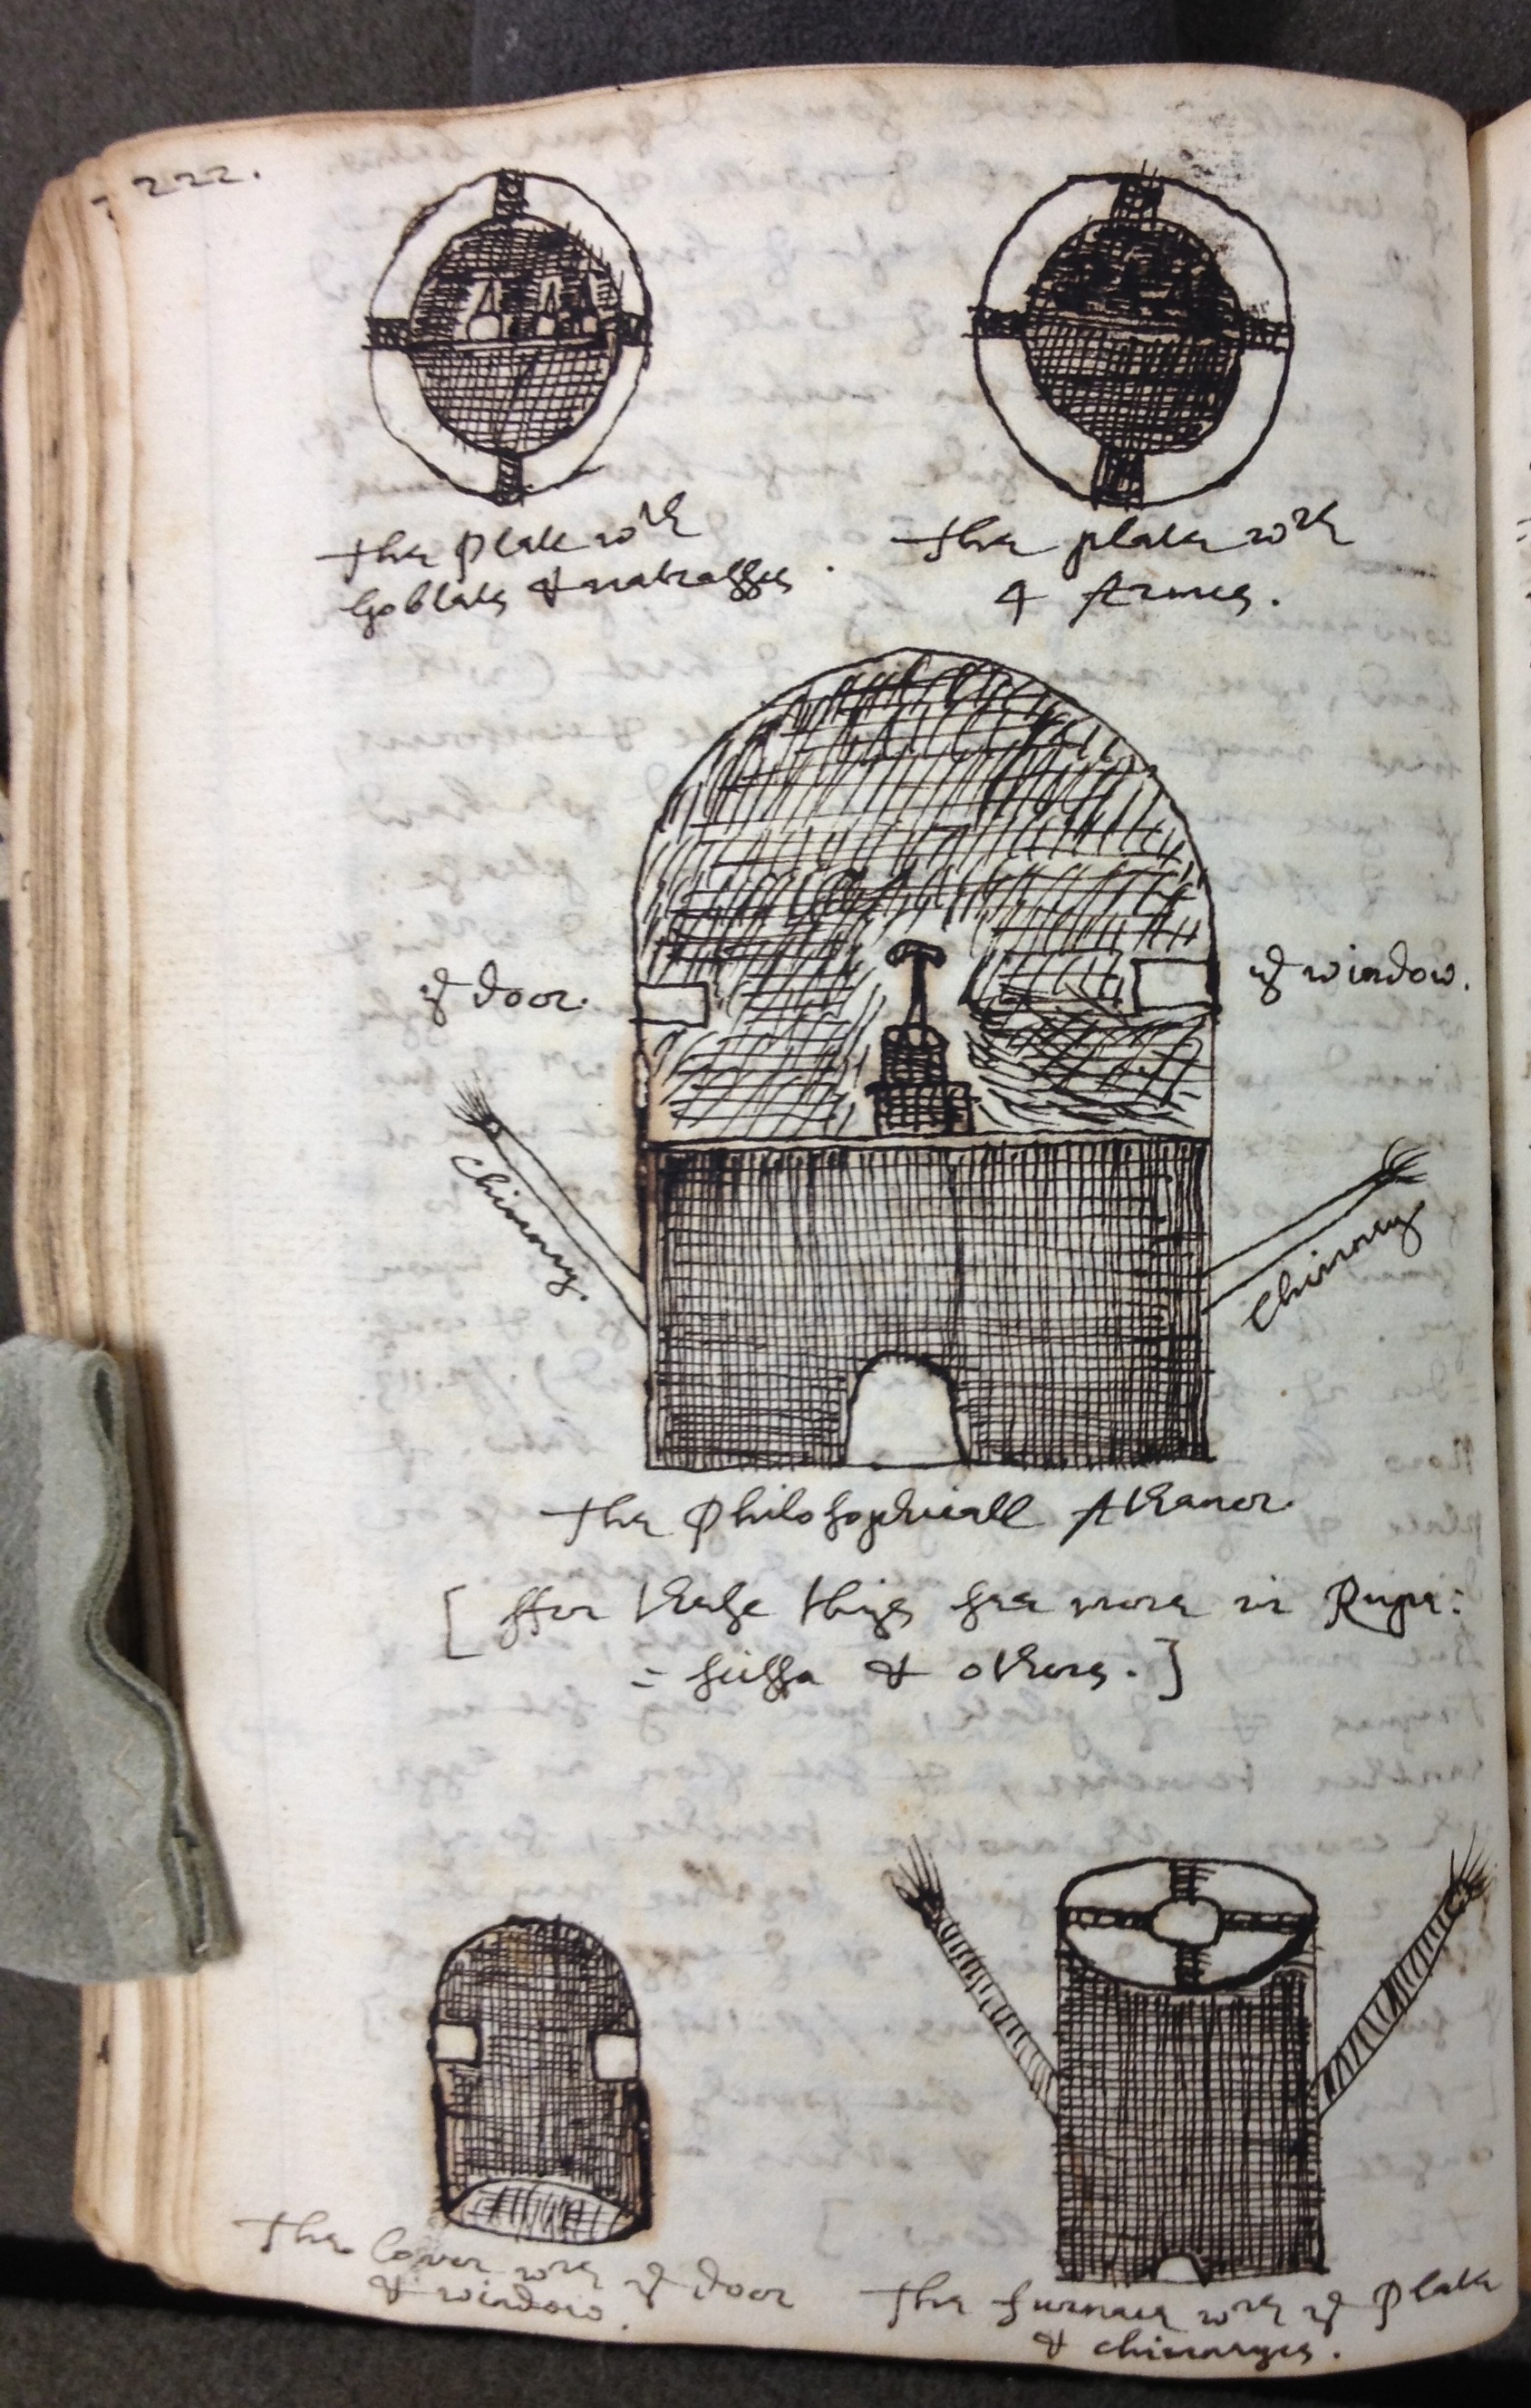 222.
The Plate wth
Goblets & matrasses.
The plate wth
4 Armes.
ye door.
ye window.
Chimny.
Chimny
The Philosophicall Athanor.
[ ffor these things see more in Rupe=
= scissa & others. ]
The Cover wth ye door
& window.
The furnace wth ye Plate
& chimnyes.